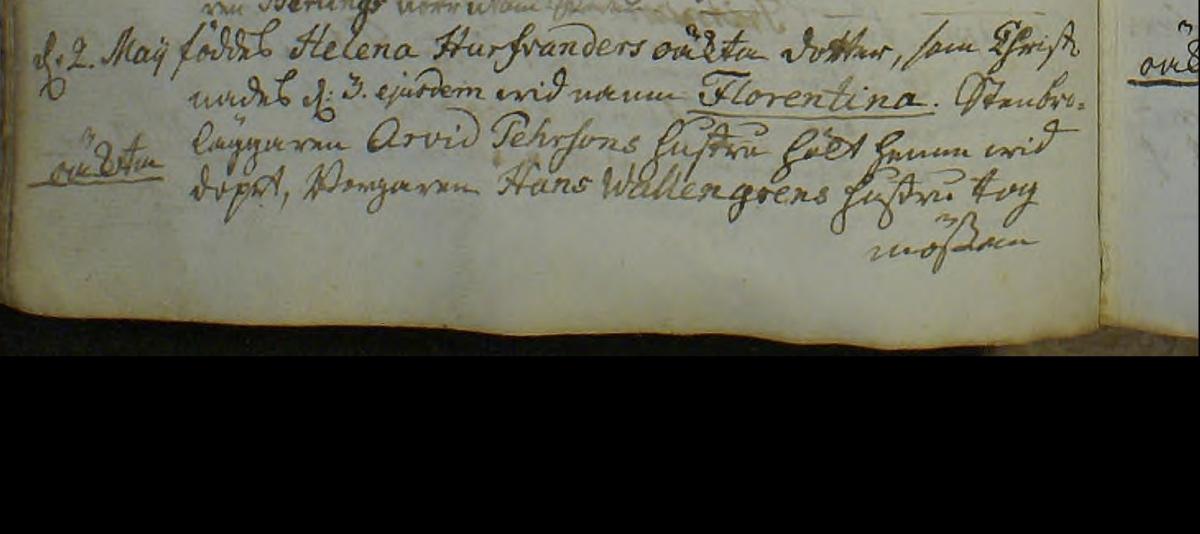 d. 2. Maÿ föddes Helena Hurfvanders oäckta dotter, som Christ-
nades d: 3. ejusdem wid namn Florentina. Stenbro-
läggaren Arvid Pehrsons hustru hölt henne wid
oäckta
dopet, Borgaren Hans Wallengrens hustru tog
mössan